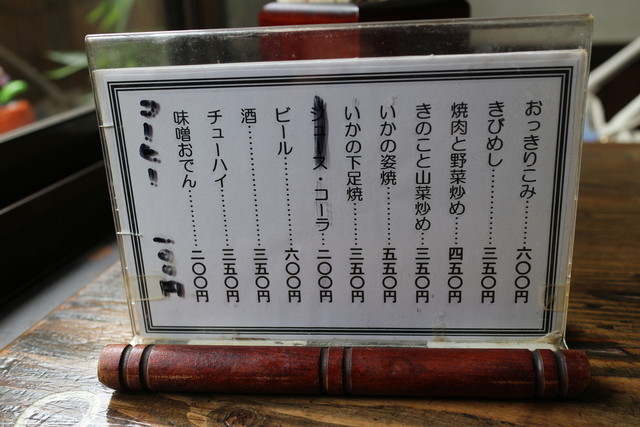 おっきりこみ……六〇〇円
きびめし……三五〇円
焼肉と野菜炒め……四五〇円
きのこと山菜炒め……三五〇円
いかの姿焼……五五〇円
いかの下足焼……三五〇円
ジュース・コーラ……二〇〇円
ビール……六〇〇円
酒……三五〇円
チューハイ……三五〇円
味噌おでん……二〇〇円
コーヒー 300円